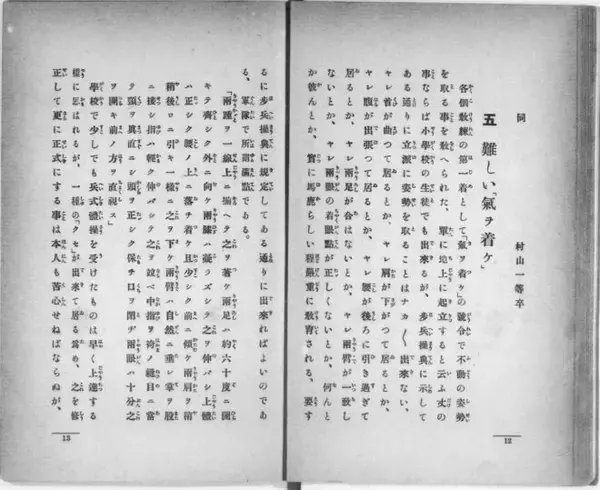 同
村山一等卒
五 難しい「氣ヲ着ケ」
各個敎練の第一着として「氣ヲ着ケ」の號令で不動の姿勢
を取る事を敎へられた、單に地上に起立すると云ふ丈の
事ならば小學校の生徒でも出來るが、歩兵操典に示して
ある通りに立派に姿勢を取ることはナカ〱出來ない、
ヤレ首が曲つて居るとか、ヤレ肩が下がつて居るとか、
ヤレ腹が出張つて居るとか、ヤレ腰が後ろに引き過ぎて
居るとか、ヤレ兩足が合はないとか、ヤレ兩臂が一致し
ないとか、ヤレ兩眼の着眼點が正しくないとか、何んと
か彼んとか、實に馬鹿らしい程嚴重に敎育される、要す
12
るに歩兵操典に規定してある通りに出來ればよいのであ
る、軍隊で所謂滿點である。
「兩踵ヲ一線上ニ揃ヘテ之ヲ着ケ兩足ハ約六十度ニ開
キテ齊シク外ニ向ケ兩膝ハ凝ラズシテ之ヲ伸バシ上體
ハ正シク腰ノ上ニ落チ着ケ且少シク前ニ傾ケ兩肩ヲ稍
稍後ロニ引キ一樣ニ之ヲ下ケ兩臂ハ自然ニ垂レ掌ヲ股
ニ接シ指ハ輕ク伸バシテ之ヲ竝ベ中指ヲ袴ノ縫目ニ當
テ頸ヲ眞直ニシ頭ヲ正シク保チ口ヲ閉ヂ兩眼ハ十分之
ヲ開キ前ノ方ヲ直視ス」
學校で少しでも兵式體操を受けたものは早く上達する
樣に思はれるが、一種の「クセ」が出來て居る爲め、之を修
正して更に正式にする事は本人も苦心せねばならぬが、
13